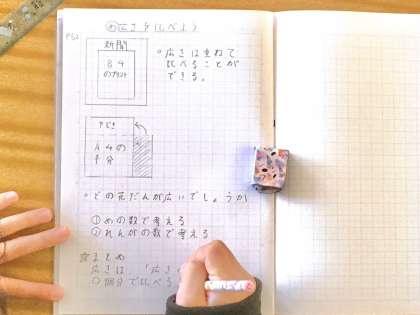 広さをくらべよう
P52
新聞
B4
のプリント
。広さは重ねて
比べることが
できる。
A4の
半分
。どの花だんが広いでしょうか
①めの数で考える
②れんがの数で考える
まとめ
広さは、「広さ
○個分で比べ